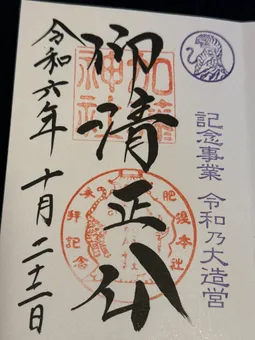 記念事業 令和乃大造営
加藤
神社
仰清正公
肥後本社
参拝記念
令和六年 十月二十二日